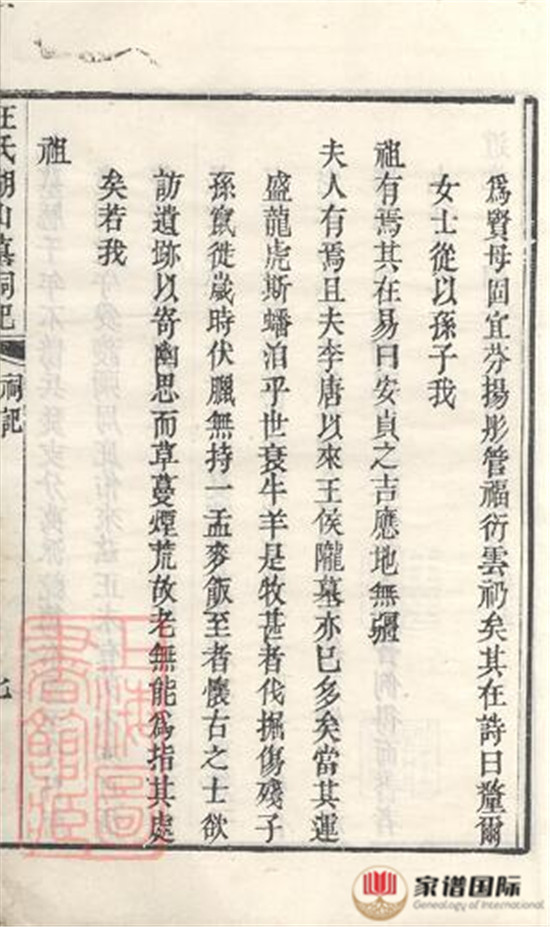 爲賢母固宜芬揚彤管福衍雲礽矣其在詩曰釐爾
女士從以孫子我
祖有焉其在易曰安貞之吉應地無疆
夫人有焉且夫李唐以來王侯隴墓亦已多矣當其運
盛龍虎斯蟠泊乎世衰牛羊是牧甚者伐掘傷殘子
孫竄徙歲時伏臘無持一盂麥飯至者懷古之士欲
訪遺跡以寄幽思而草蔓煙荒故老無能爲指其處
矣若我
祖
汪氏湖山墓祠記
祠記
七
家谱国际
Genealogy of International